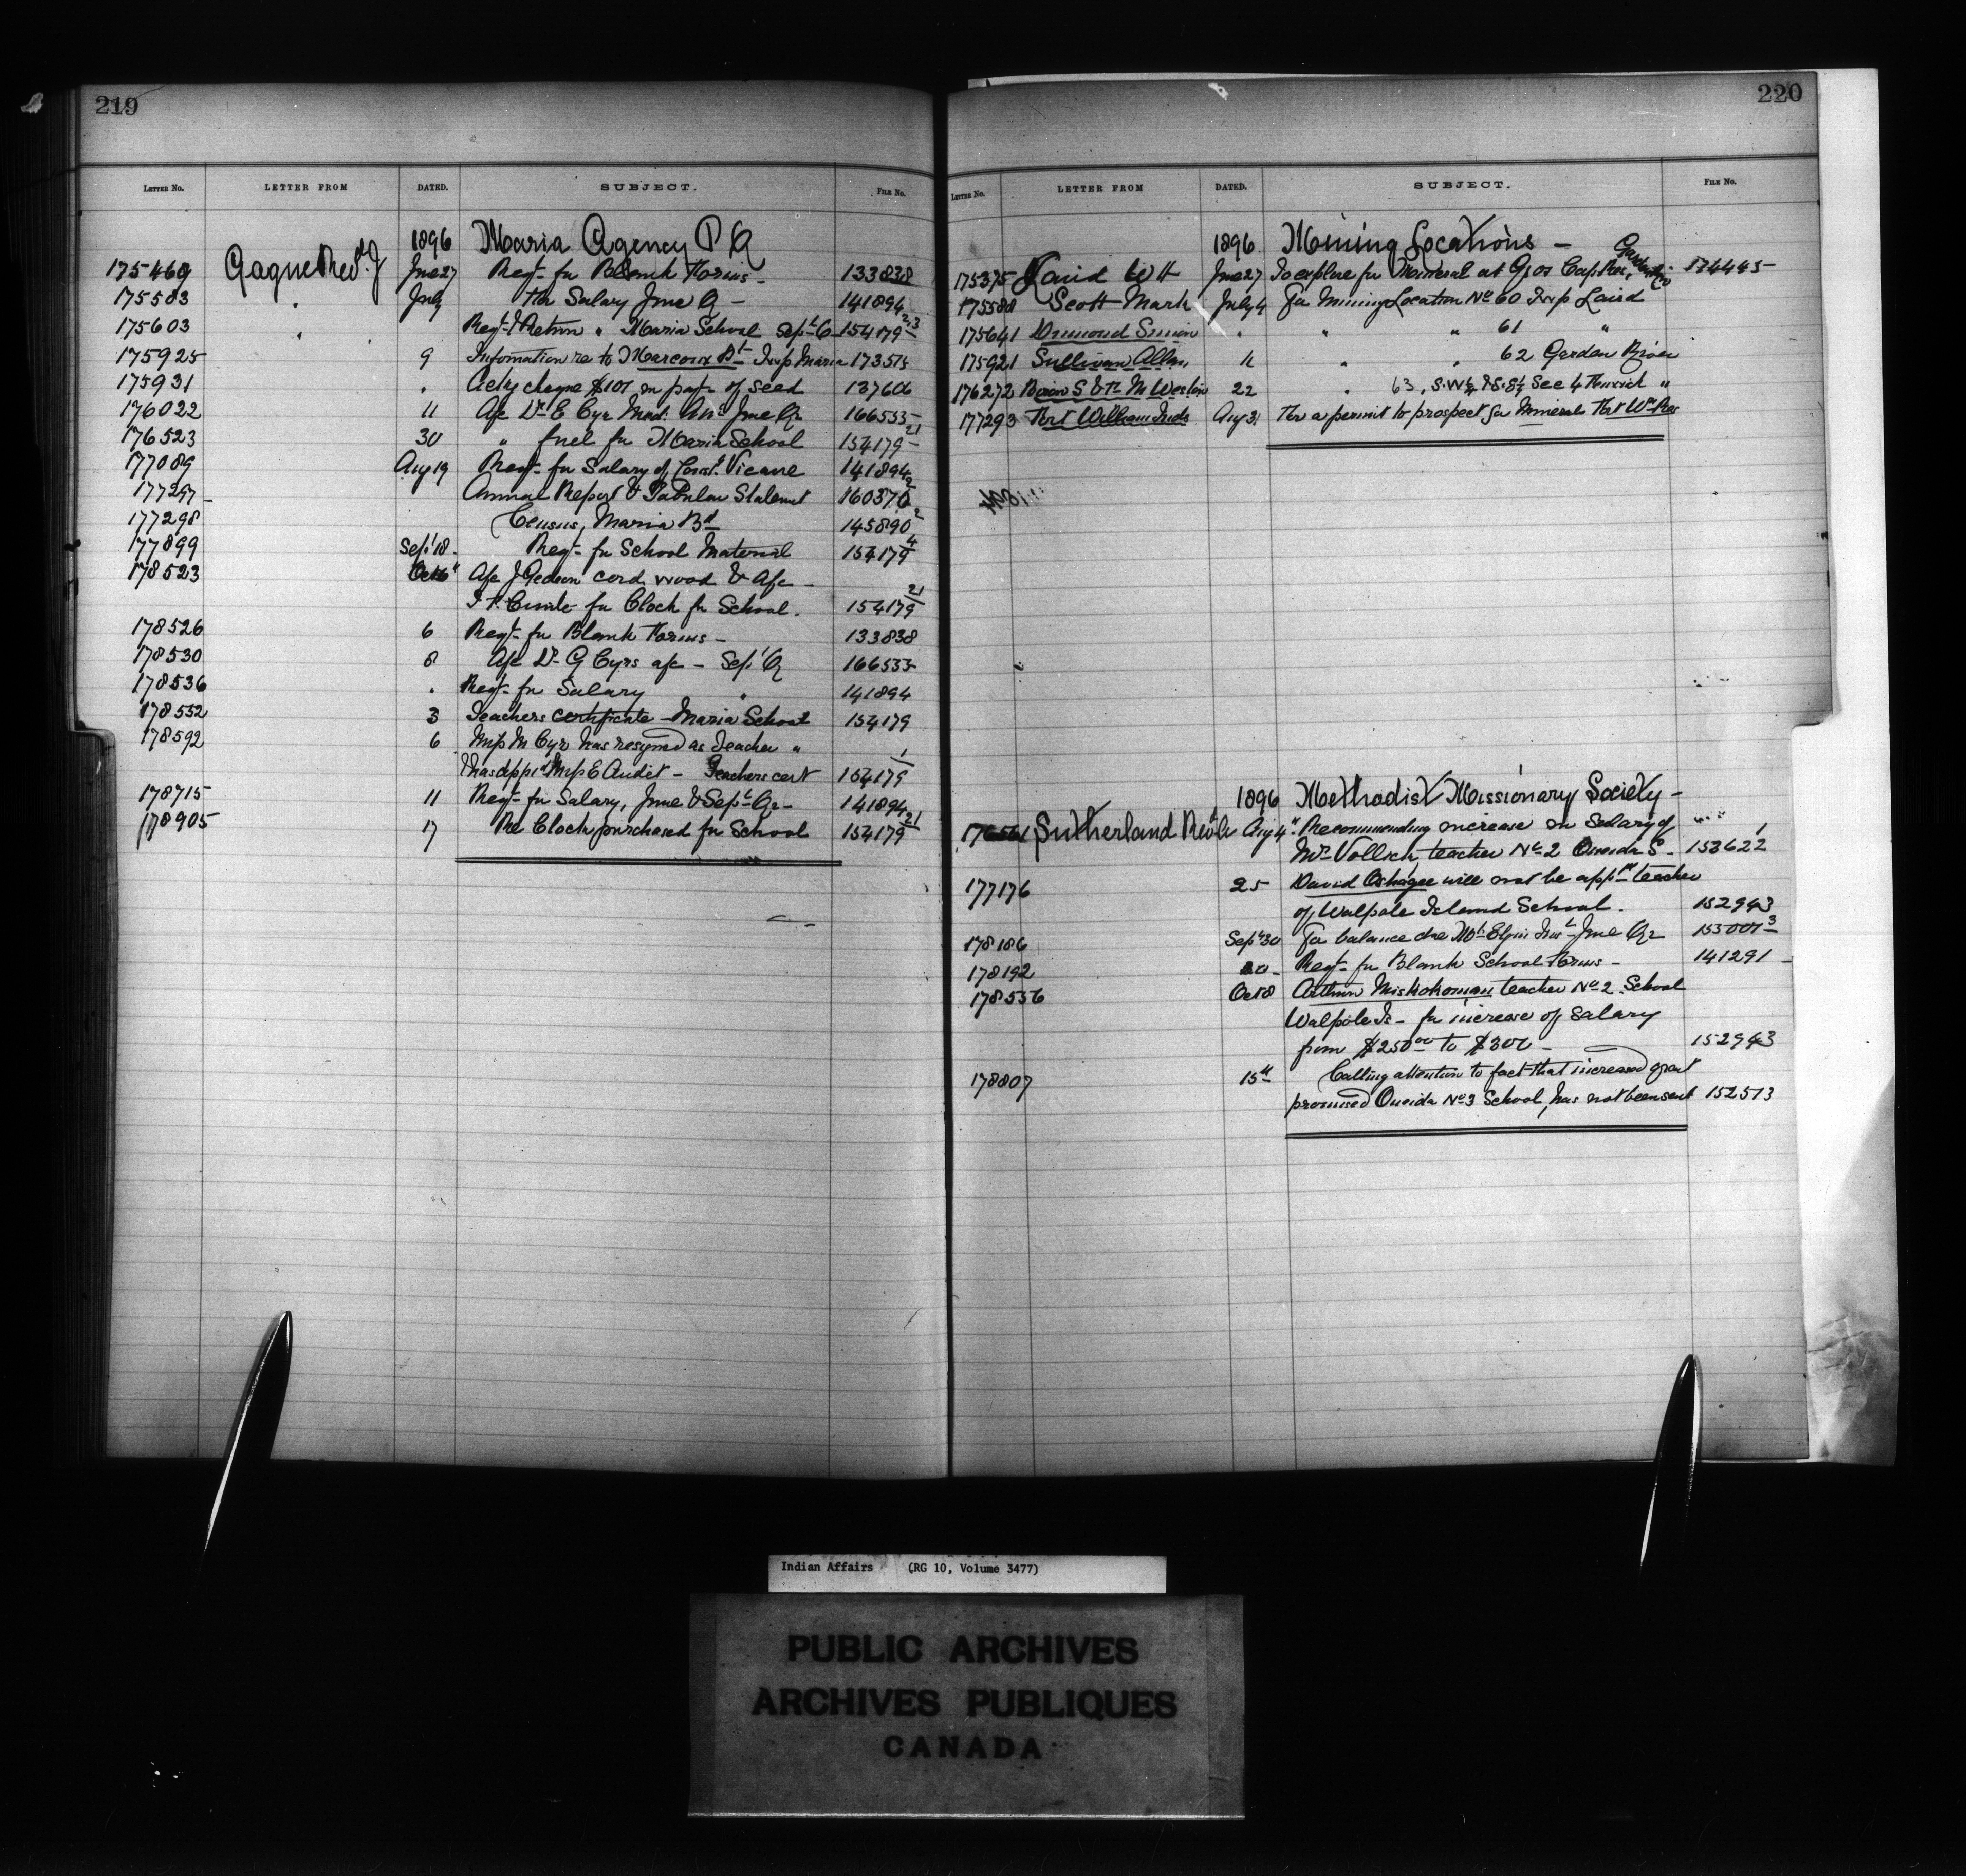 219
LETTER No. LETTER FROM DATED. SUBJECT. FILE No.
1896 Maria Agency P Q
175469 Gagne Revd. J June 27 Reqt. for Blank Forms - 133838
175583 " July For Salary June Q - 141894
175603 " Reqt. & Return " Maria School Sept Q 154179
175925 9 Information re to Marcoux Bt Twp Maria 173515
175931 " cheque $101 in payt. of seed 137606
176022 11 A/c Dr. E Cyr June Qr 166535
176523 30 " fuel for Maria School 154179
177089 Aug 19 Reqt. for Salary of Const. Vicaire 141894
177297 Annual Report & Tabular Statement 160370
177298 Census, Maria Bd 145890
177899 Sept 18 Reqt. for School Material 154179 4
178523 Oct 6 A/c J Gedeon cord wood & A/c -
for Clock for School. 154179 21
178526 6 Reqt. for Blank Forms - 133838
178530 8 A/c Dr. G Cyrs a/c - Sept Q 166535
178536 " Reqt. for Salary " 141894
178532 3 Teachers certificate - Maria School 154179
178592 6 Miss M Cyr has resigned as Teacher "
& has appd. Miss E Audet - Teachers cert 154179 1
178715 11 Reqt. for Salary, June & Sept. Qr - 141894
178905 17 Re Clock purchased for School 154179 21
220
LETTER No. LETTER FROM DATED. SUBJECT. FILE No.
1896 Mining Locations -
175375 Laird W H June 27 To explore for Mineral at Gros Cap Res, 174445
175588 Scott Mark July 4 For Mining Location No 60 Twp Laird
175641 Simon " " " 61 "
175921 Sullivan Allan 11 " " 62 Garden River
176272 22 " 63, S.W¼ & S.E¼ Sec 4 "
177293 Fort William Inds Aug 31 For a permit to prospect for Minerals Fort Wm Res
1896 Methodist Missionary Society -
Sutherland Revd A Aug 4 Recommending increase in Salary of
Mr. Vollick, teacher No 2 Oneida S - 153622 1
177176 25 David Oshagee will not be appd teacher
of Walpole Island School. 152943
178186 Sept 30 For balance due Mt. Elgin Inst - June Qr 153001 3
178192 30 - Reqt. for Blank School Forms - 141291
178536 Oct 8 Arthur Miskokoman teacher No 2 School
Walpole Is - for increase of Salary
from $250 00 to $300 - 152943
178807 15th Calling attention to fact that increased grant
promised Oneida No 3 School, has not been sent 152513
Indian Affairs (RG 10, Volume 3477)
PUBLIC ARCHIVES
ARCHIVES PUBLIQUES
CANADA